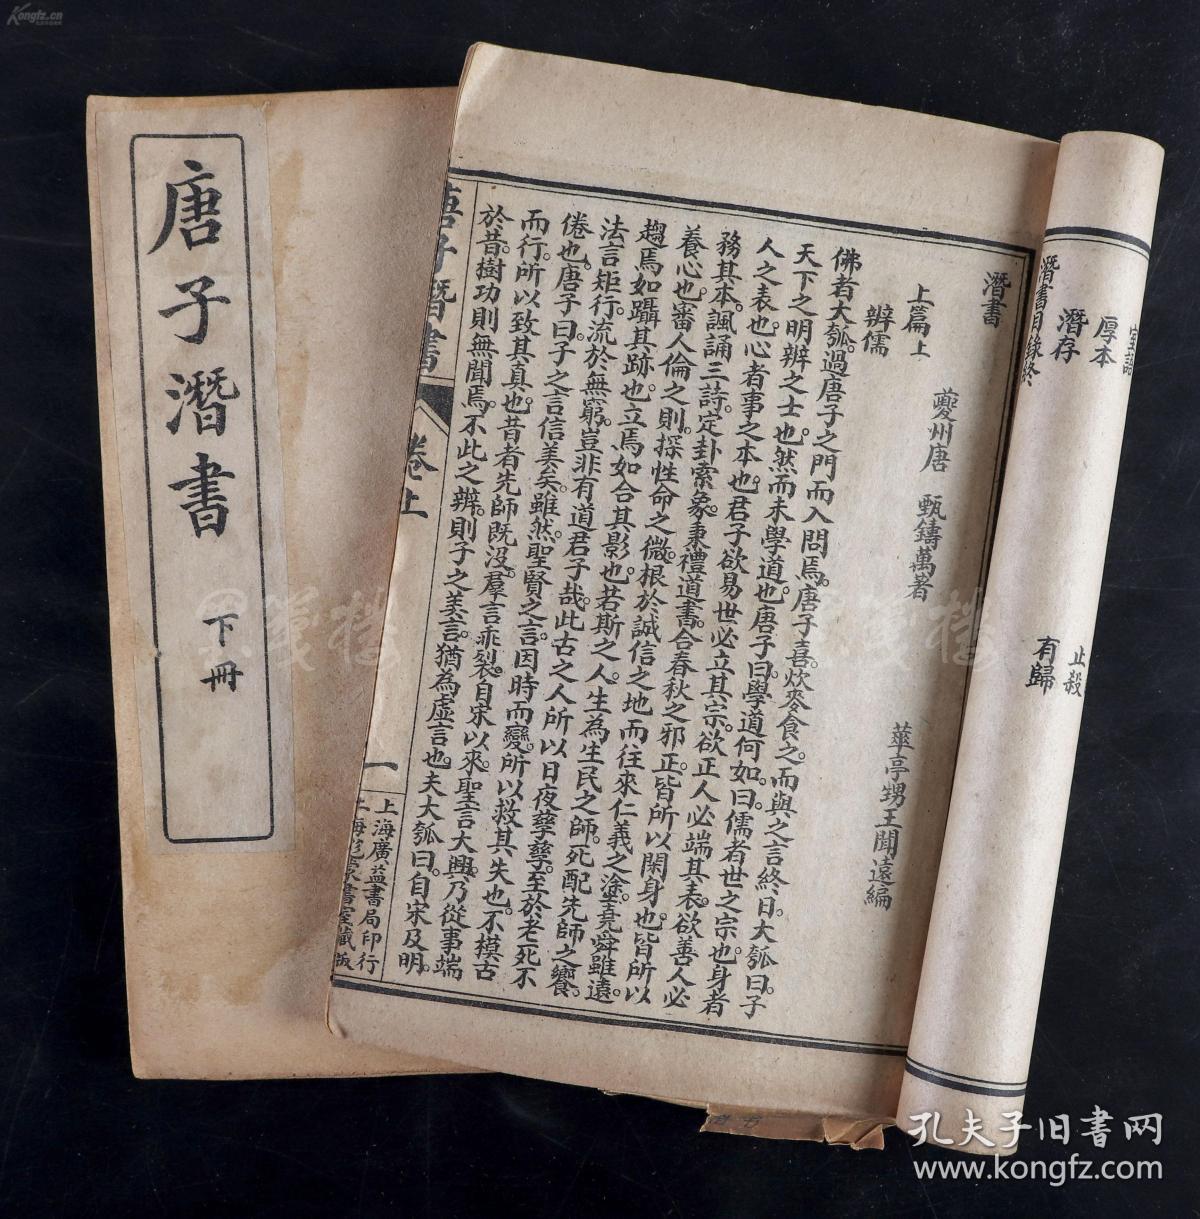 Kongfz.cn
唐子潛書
下冊
室語
厚本
止殺
潛存
有歸
潛書目錄終
潛書
夔州唐 甄鑄萬著
華亭甥王聞遠編
上篇上
辨儒
佛者大瓠過唐子之門而入問焉唐子喜炊麥食之而與之言終日大瓠曰子
天下之明辨之士也然而未學道也唐子曰學道何如曰儒者世之宗也身者
人之表也心者事之本也君子欲易世必立其宗欲正人必端其表欲善人必
務其本諷誦三詩定卦索象秉禮道書合春秋之邪正皆所以閑身也皆所以
養心也審人倫之則探性命之微根於誠信之地而往來仁義之塗堯舜雖遠
趨焉如躡其跡也立焉如合其影也若斯之人生為生民之師死配先師之饗
法言矩行流於無窮豈非有道君子哉此古之人所以日夜孳孳至於老死不
倦也唐子曰子之言信美矣雖然聖賢之言因時而變所以救其失也不模古
而行所以致其真也昔者先師既沒羣言乖裂自宋以來聖言大興乃從事端
於昔樹功則無聞焉不此之辨則子之美言猶為虛言也夫大瓠曰自宋及明
唐子潛書
卷上
一
上海廣益書局印行
孔夫子旧书网
www.kongfz.com